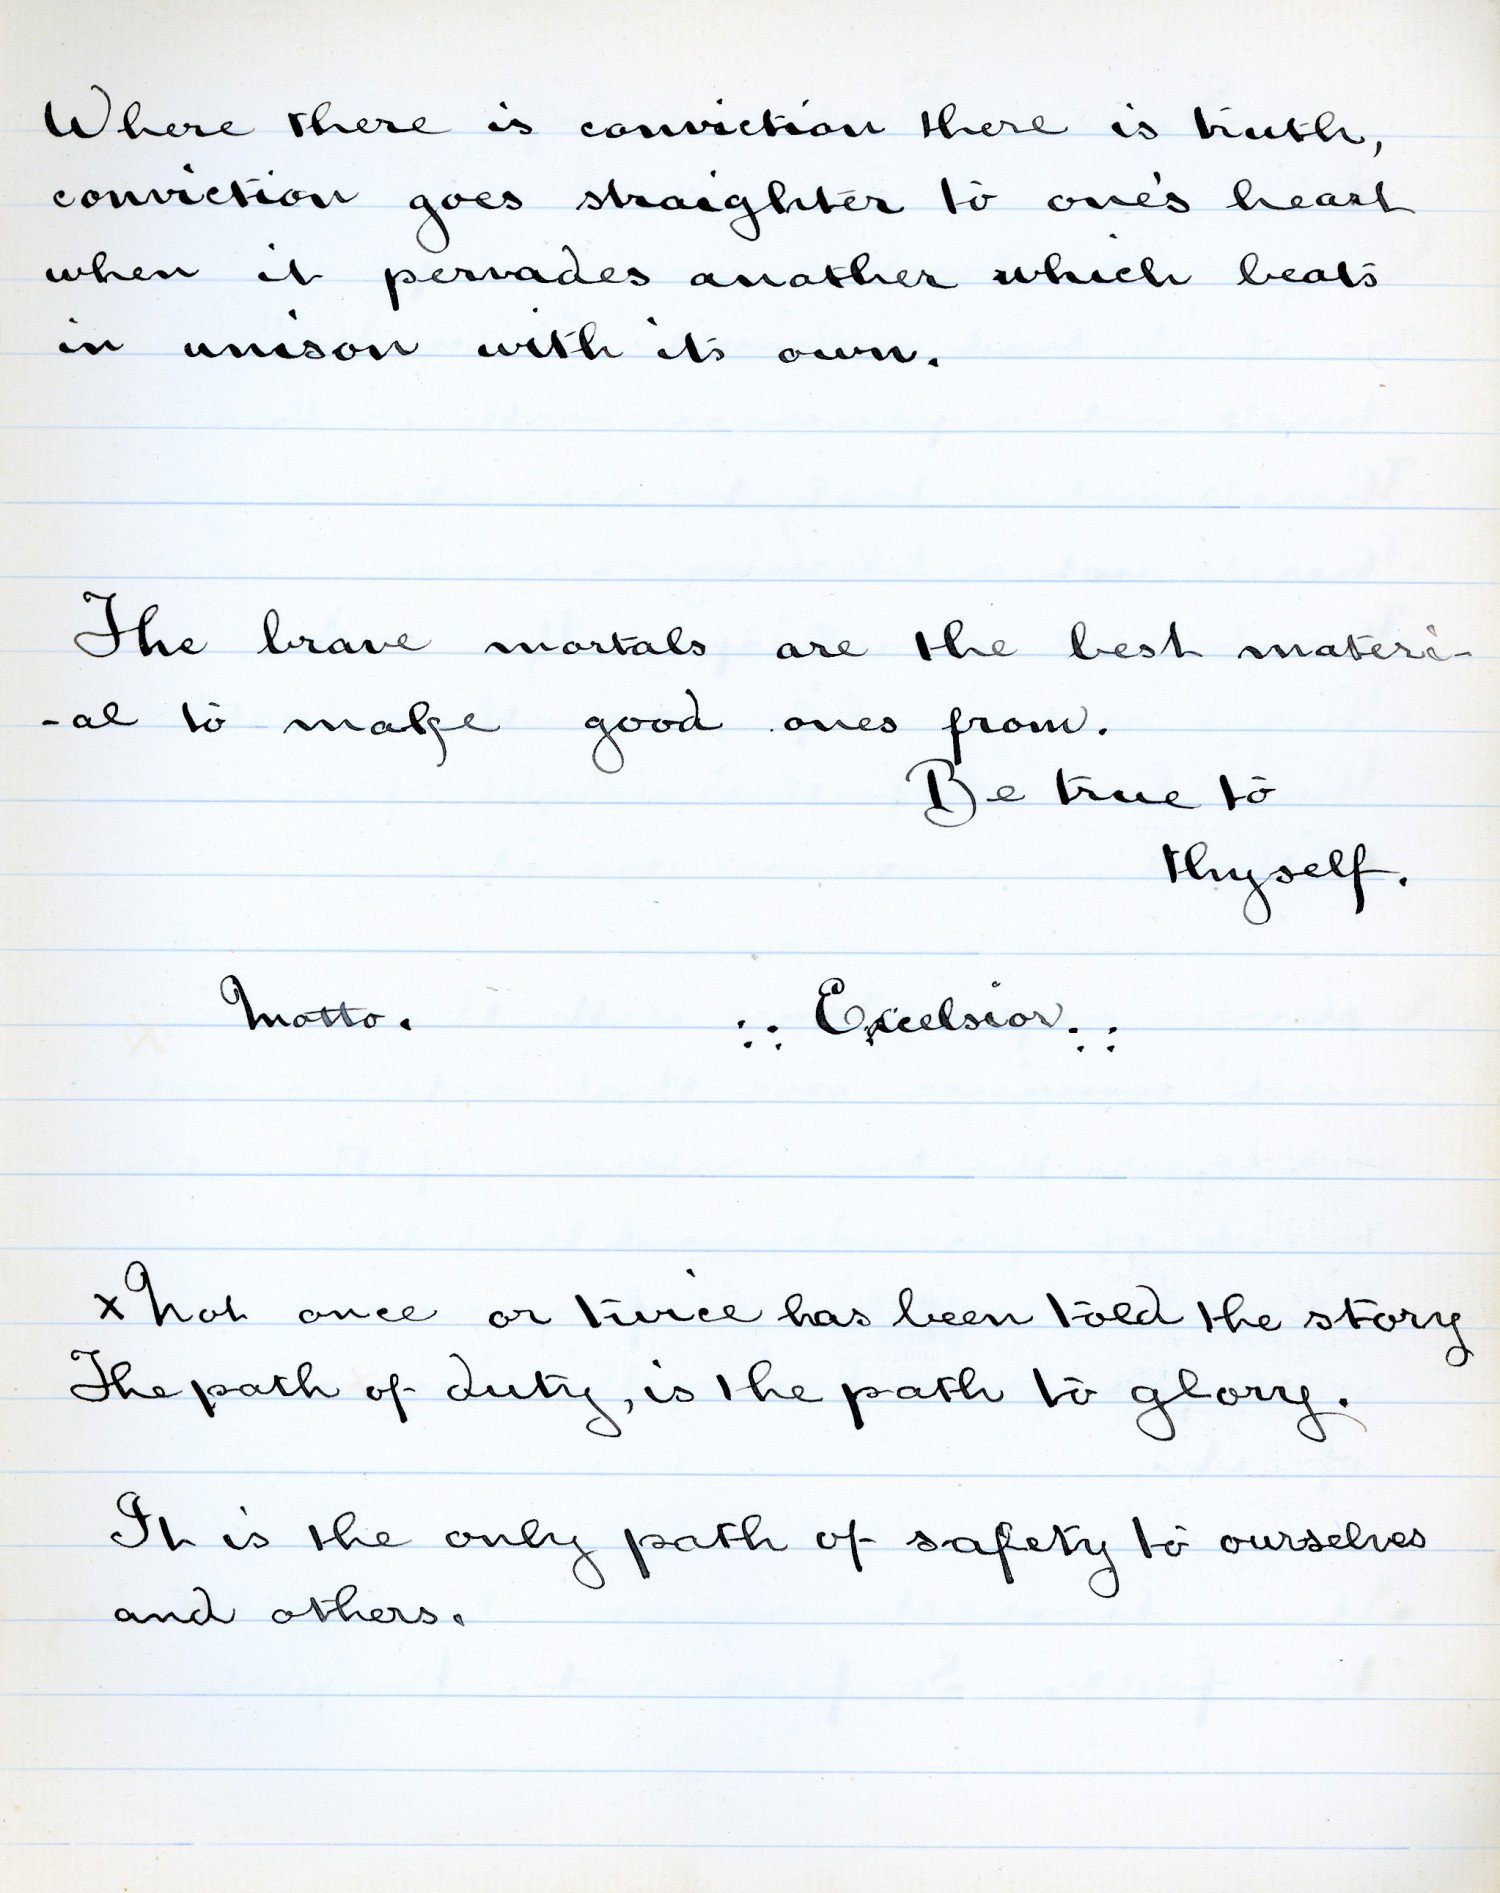 Where there is conviction there is truth,
conviction goes straighter to one's heart
when it pervades another which beats
in unison with its own.
The brave mortals are the best materi-
-al to make good ones from.
Be true to
thyself.
Motto. :. Excelsior. .:
x Not once or twice has been told the story
The path of duty, is the path to glory.
It is the only path of safety to ourselves
and others.